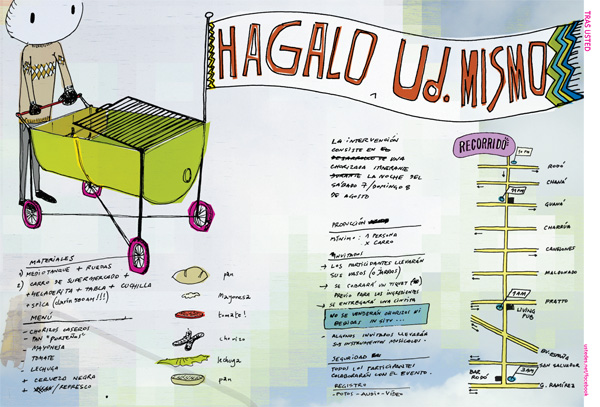 TRAS USTED
HAGALO Ud. MISMO
LA INTERVENCIÓN
CONSISTE EN
UNA
CHORIZADA ITINERANTE
DURANTE LA NOCHE DEL
SÁBADO 7/DOMINGO 8
DE AGOSTO
PRODUCCIÓN
MÍNIMO: 1 PERSONA
X CARRO
INVITADOS
→ LOS PARTICIPANTES LLEVARÁN
SUS VASOS (O JARROS)
→ SE COBRARÁ UN TIQUET
PREVIO PARA LOS INGREDIENTES
→ SE ENTREGARÁ UNA CINTITA
NO SE VENDERÁN CHORIZOS NI
BEBIDAS IN SITU...
- ALGUNOS INVITADOS LLEVARÁN
INSTRUMENTOS MUSICALES.
SEGURIDAD
TODOS LOS PARTICIPANTES
COLABORARÁN CON EL EVENTO.
REGISTRO
-FOTOS-AUDIO-VIDEO
MATERIALES
1) MEDIOTANQUE + RUEDAS
2) CARRO DE SUPERMERCADO +
+ HELADERITA + TABLA + CUCHILLA
+ SPICA
MENÚ
- CHORIZOS CASEROS
- PAN "PORTEÑOS"
- MAYONESA
- TOMATE
- LECHUGA
+ CERVEZA NEGRA
+ /REFRESCO
pan
Mayonesa
tomate!
chorizo
lechuga
pan
RECORRIDO
RODÓ
CHANÁ
GUANÁ
CHARRÚA
CANELONES
MALDONADO
1AM
PRATTO
LIVING
PUB
BV. ESPAÑA
SAN SALVADOR
BAR
RODÓ
3AM
G. RAMÍREZ